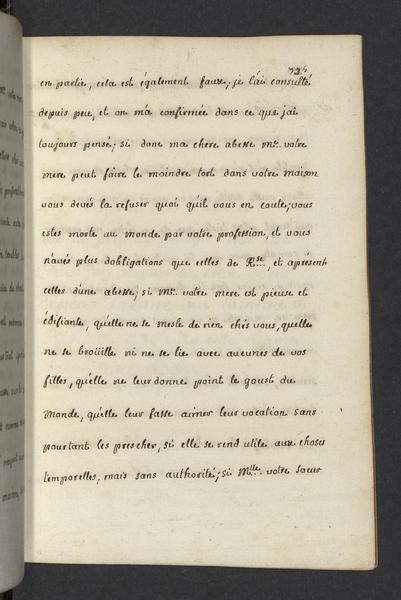 en partie, cela est également faux; je l'ai consulté
depuis peu, et on m'a confirmée dans ce que j'ai
toujours pensé; si donc ma chere abesse me. votre
mere peut faire le moindre tort dans votre maison
vous devés la refuser quoi qu'il vous en coute; vous
estes morte au monde par votre profession, et vous
n'avés plus dobligations que celles de Rse., et aprésent
celles d'une abesse; si me. votre mere est pieuse et
édifiante, qu'elle ne se mesle de rien chés vous, quelle
ne se broüille ni ne se lie avec aucunes de vos
filles, qu'elle ne leur donne point le goust du
monde, qu'elle leur fasse aimer leur vocation sans
pourtant les prescher, si elle se rend utile aux choses
temporelles, mais sans authorité; si Mlle. votre soeur